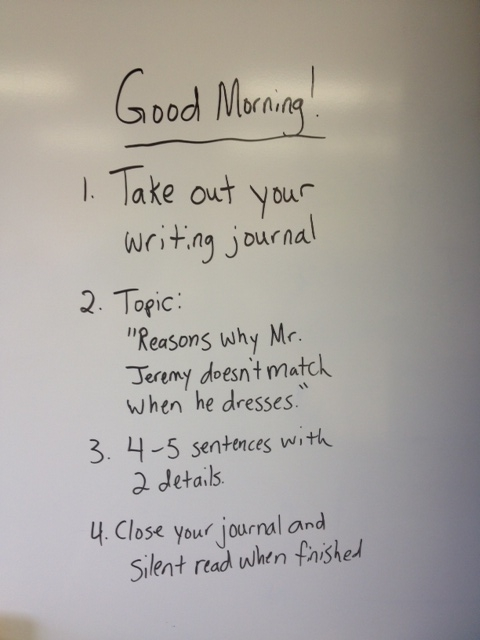 Good Morning!
1. Take out your
writing journal
2. Topic:
"Reasons why Mr.
Jeremy doesn't match
when he dresses."
3. 4-5 sentences with
2 details.
4. Close your journal and
Silent read when finished